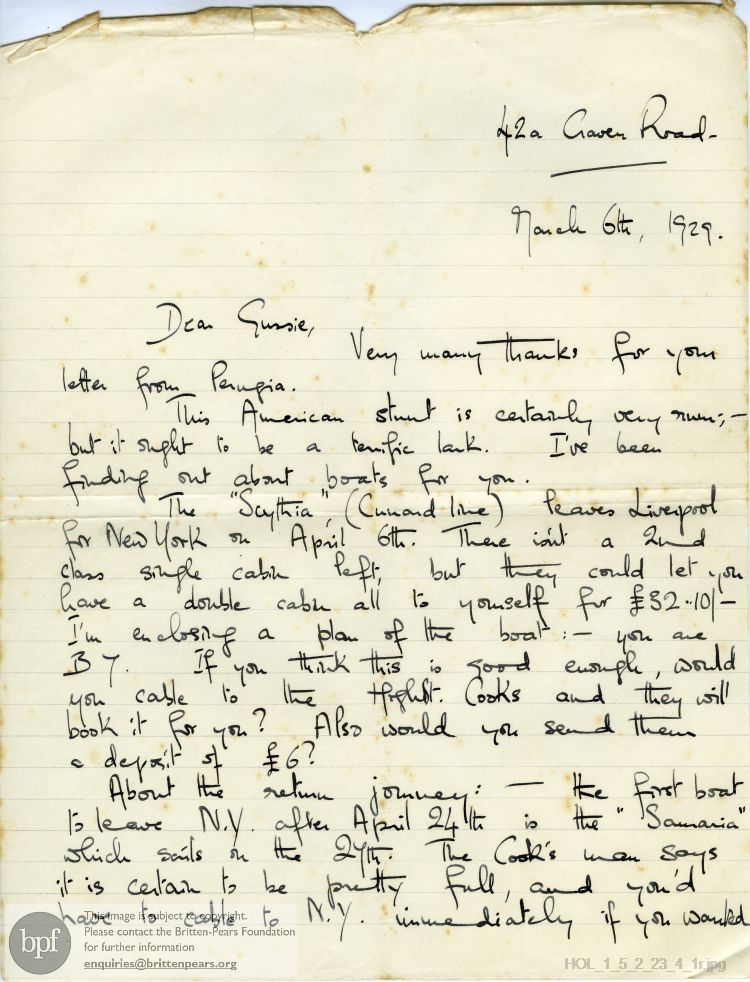 42a Craven Road -
March 6th, 1929.
Dear Gussie,
Very many thanks for your
letter from Perugia.
This American stunt is certainly very rum; -
but it ought to be a terrific lark. I've been
finding out about boats for you.
The "Scythia", (Cunard line) leaves Liverpool
for New York on April 6th. There isn't a 2nd
class single cabin left, but they could let you
have a double cabin all to yourself for £32.10/-
I'm enclosing a plan of the boat: - you are
B 7. If you think this is good enough, would
you cable to the Cooks and they will
book it for you? Also would you send them
a deposit of £6?
About the return journey: - the first boat
to leave N.Y. after April 24th is the "Samaria"
which sails on the 27th. The Cook's man says
it is certain to be pretty full, and you'd
have to cable to N.Y. immediately if you wanted
bpf
This image is subject to copyright.
Please contact the Britten-Pears Foundation
for further information
enquiries@brittenpears.org
HOL_1_5_2_23_4_1r.jpg